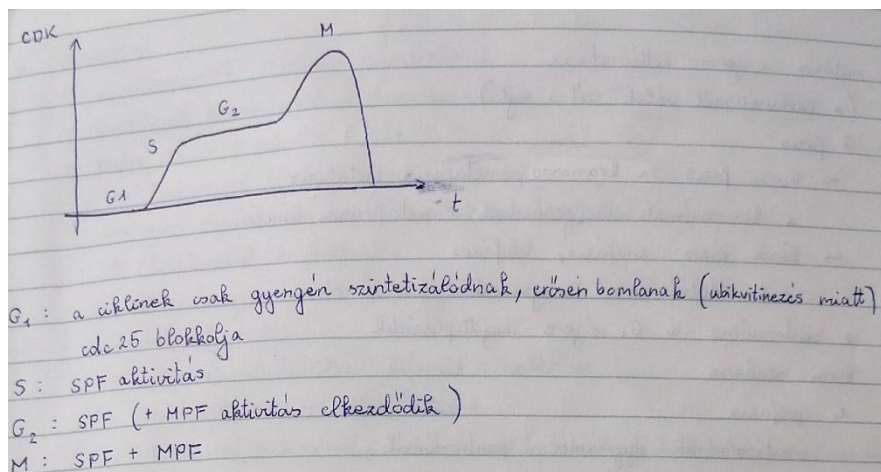 CDK
M
G2
S
G1
t
G1 : a ciklinek csak gyengén szintetizálódnak, erősen bomlanak (ubikvitinezés miatt)
cdc 25 blokkolja
S : SPF aktivitás
G2 : SPF (+ MPF aktivitás elkezdődik)
M : SPF + MPF